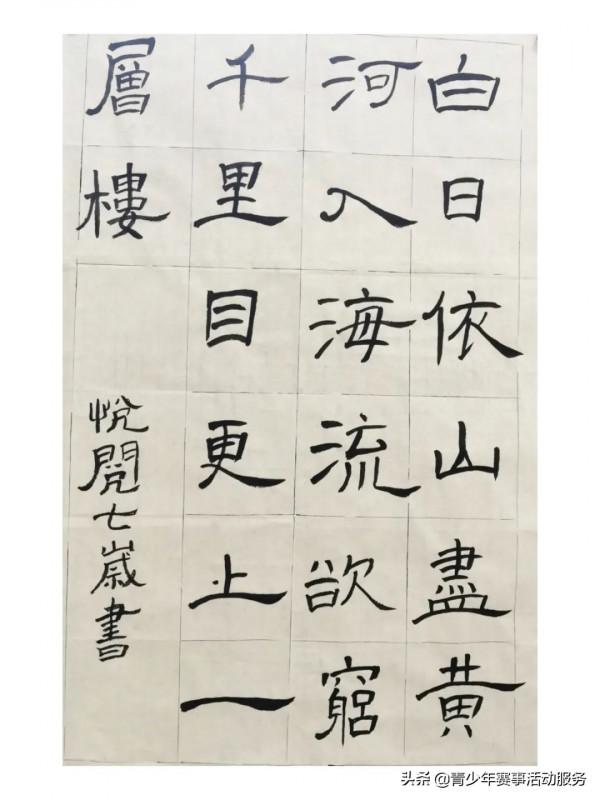 白日依山盡黄
河入海流欲窮
千里目更上一
層樓
悅閱七歲書
头条 @青少年赛事活动服务